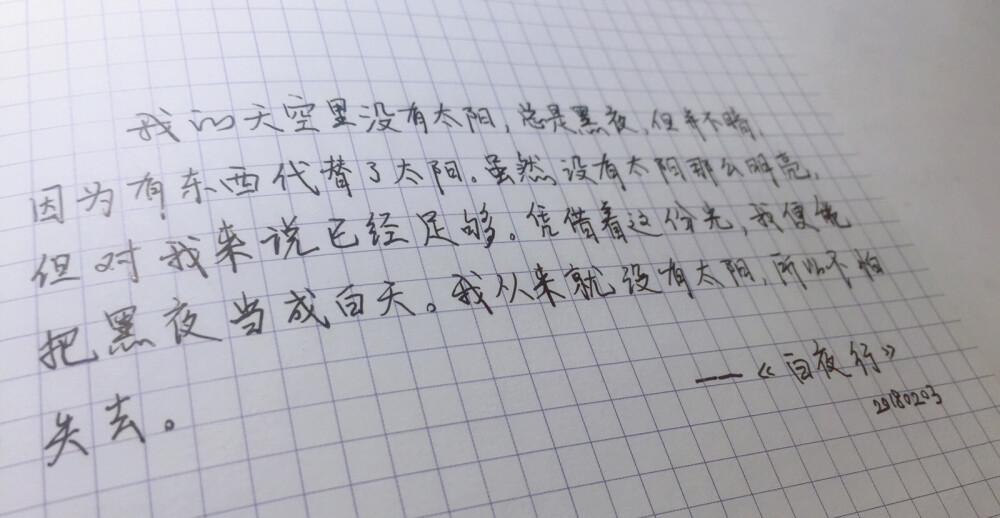 我的天空里没有太阳，总是黑夜，但并不暗，
因为有东西代替了太阳。虽然没有太阳那么明亮，
但对我来说已经足够。凭借着这份光，我便能
把黑夜当成白天。我从来就没有太阳，所以不怕
失去。
——《白夜行》
20180203